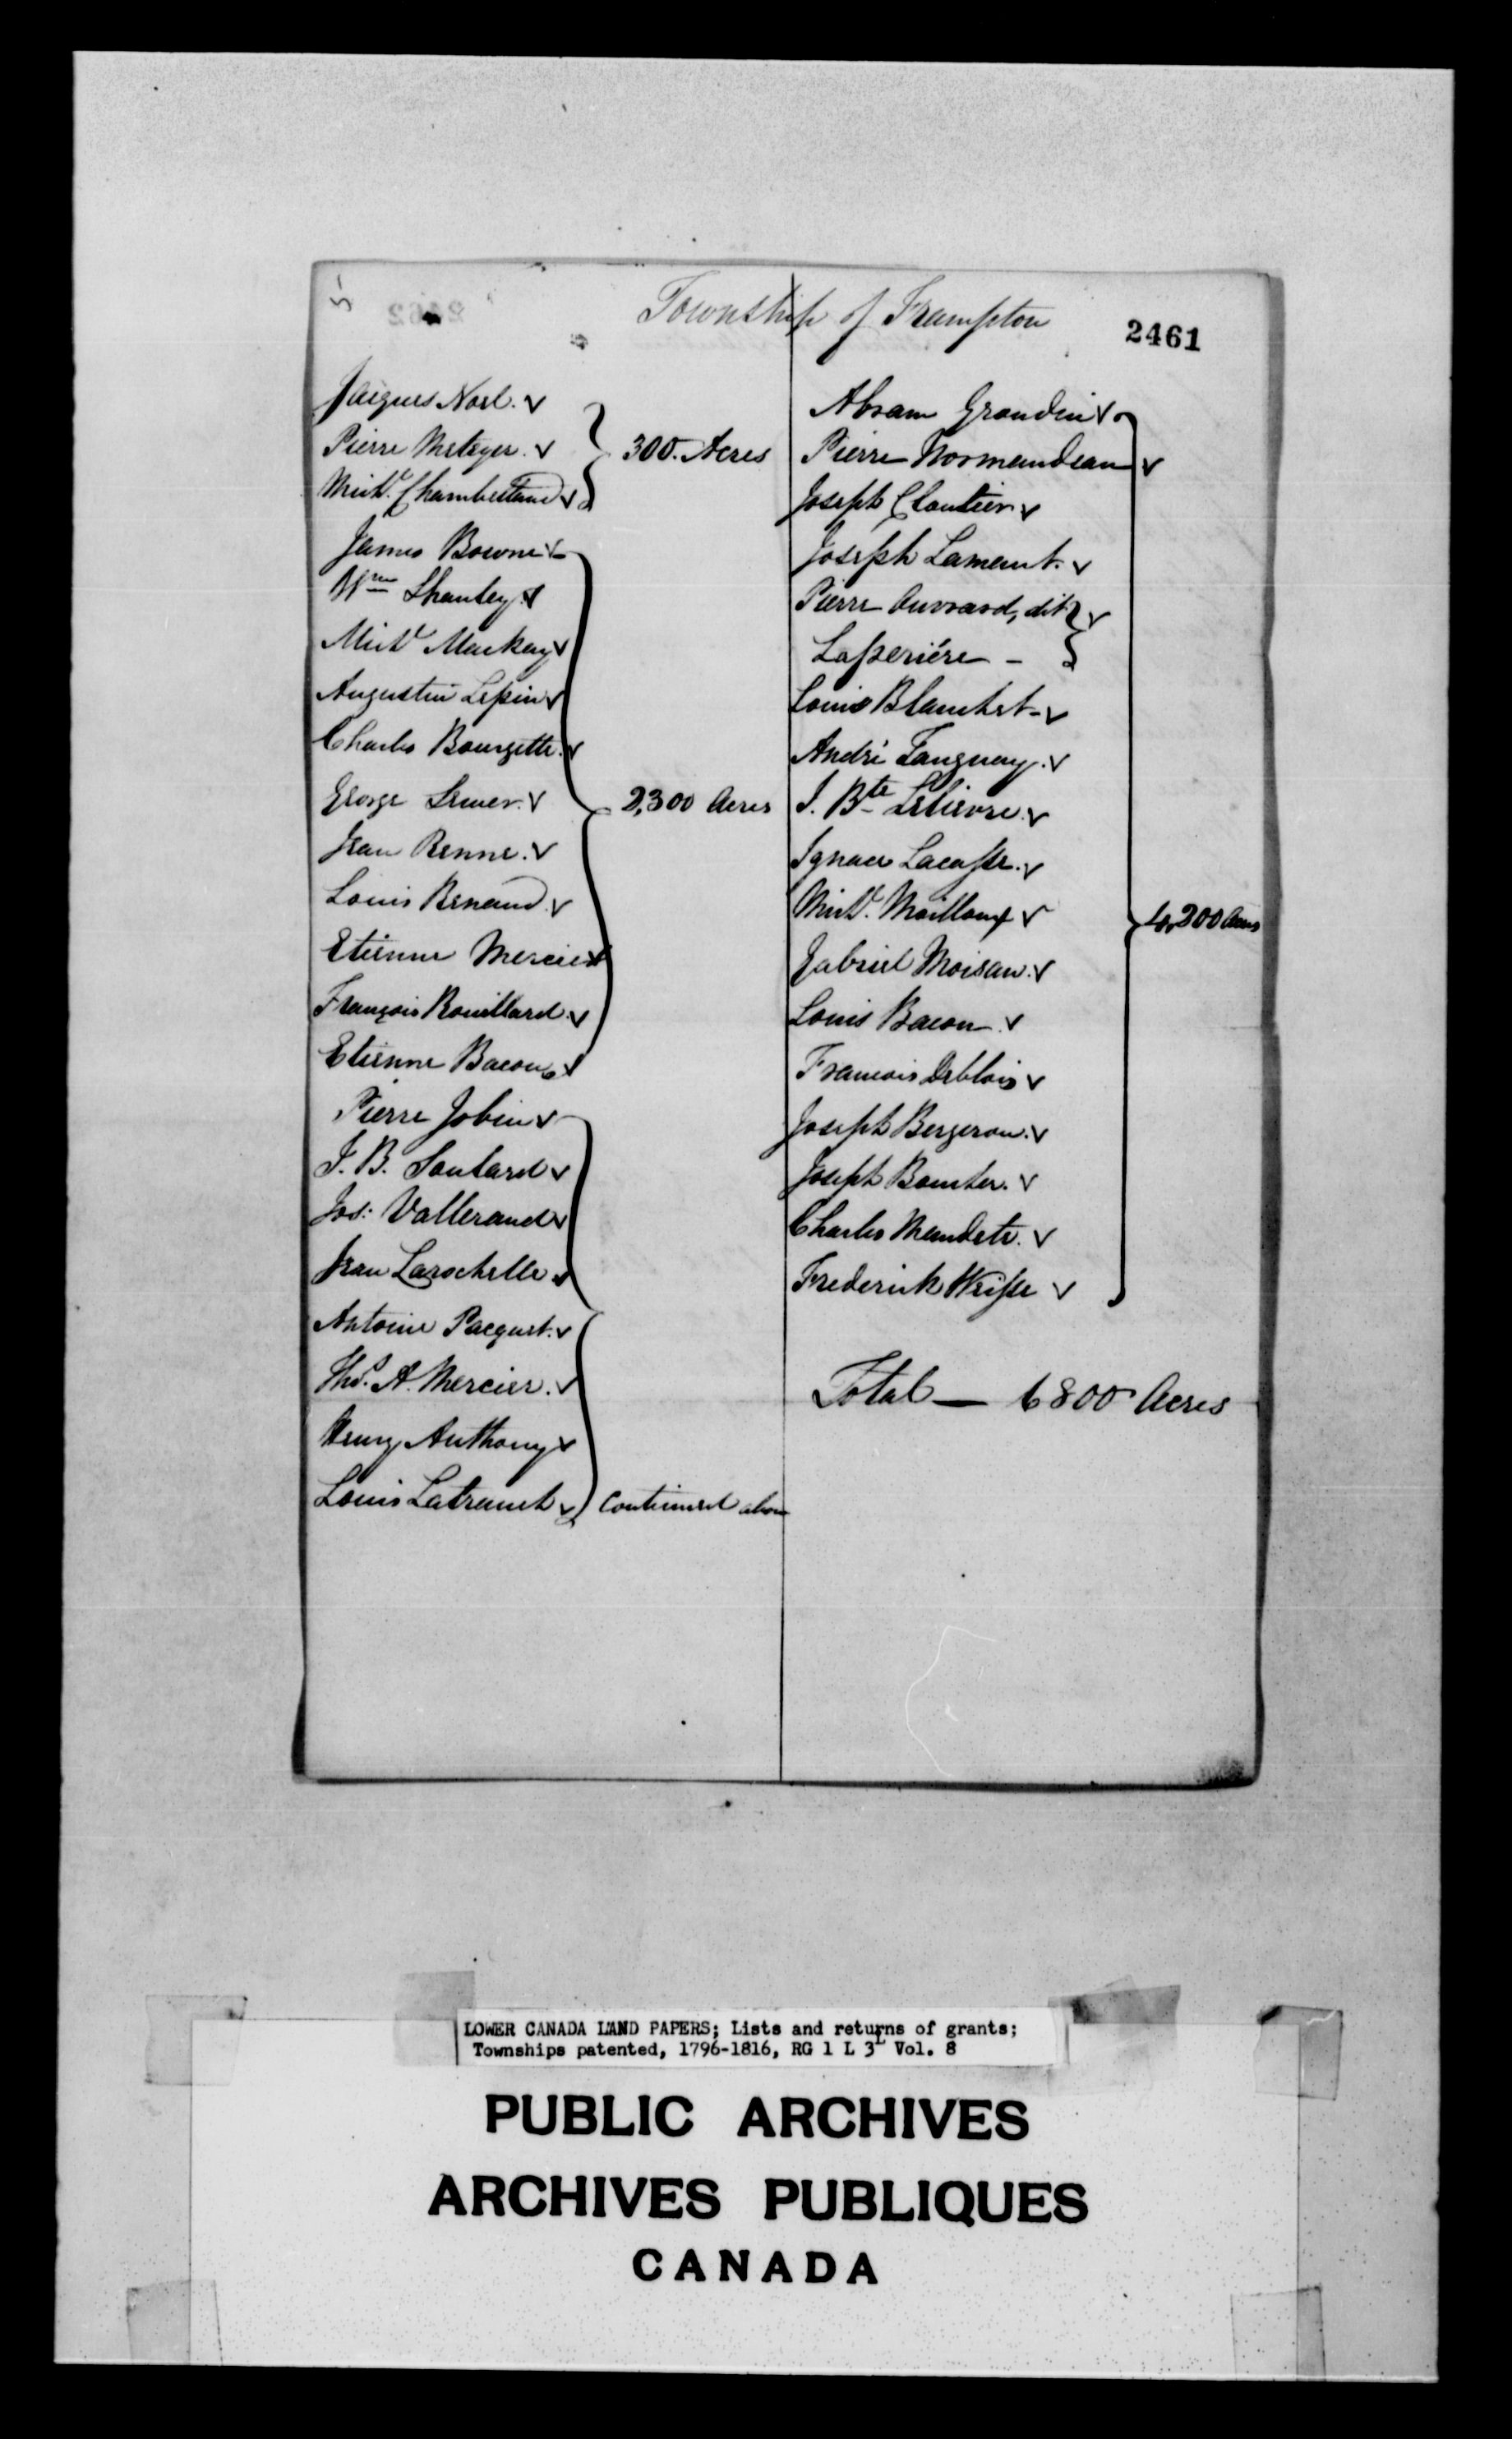 5
Township of Frampton
2461
Jacques Noel.
Pierre Metayer.
Michl. Chamberland
300. Acres
James Bowne
Wm Shanley
Michl Mackay
Augustin Lepin
Charles Bourgette.
George Lemer.
Jean Renne.
Louis Renaud.
Etienne Mercier
François Rouillard.
Etienne Bacon
2,300 Acres
Pierre Jobin
J. B. Soulard
Jos: Vallerand
Jean Larochelle
Antoine Pacquet.
Ths. A. Mercier.
Henry Anthony
Louis Latranch
Continued above
Abram Grondin
Pierre Normandeau
Joseph Cloutier
Joseph Lament.
Pierre Auvrard, dit
Lasperiére -
Louis Blanchet
André Tanguay.
J. Bte Lelievre.
Ignace Lacasse.
Michl. Mailloux
Gabriel Moisan.
Louis Bacon
Francois Deblois
Joseph Bergeron.
Joseph Boucher.
Charles Mandete.
Frederick Weisse
4,200 Acres
Total — 6800 Acres
LOWER CANADA LAND PAPERS; Lists and returns of grants;
Townships patented, 1796-1816, RG 1 L 3L Vol. 8
PUBLIC ARCHIVES
ARCHIVES PUBLIQUES
CANADA